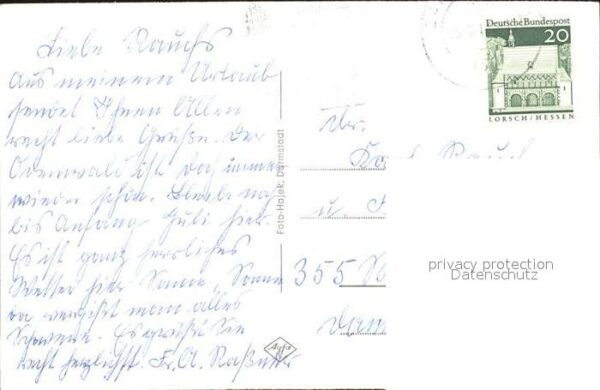 Liebe Rauchs
Aus meinem Urlaub
sendet Ihnen Allen
recht liebe Grüße. Der
Odenwald ist doch immer
wieder schön. Bleibe noch
bis Anfang Juli hier.
Es ist ganz herrliches
Wetter hier Sonne, Sonne
da vergißt man alles
Schwere. Es grüßt Sie
recht herzlichst. Fr. A.
Foto-Hajek, Darmstadt
Agfa
Deutsche Bundespost
20
LORSCH/HESSEN
u.
355
privacy protection
Datenschutz